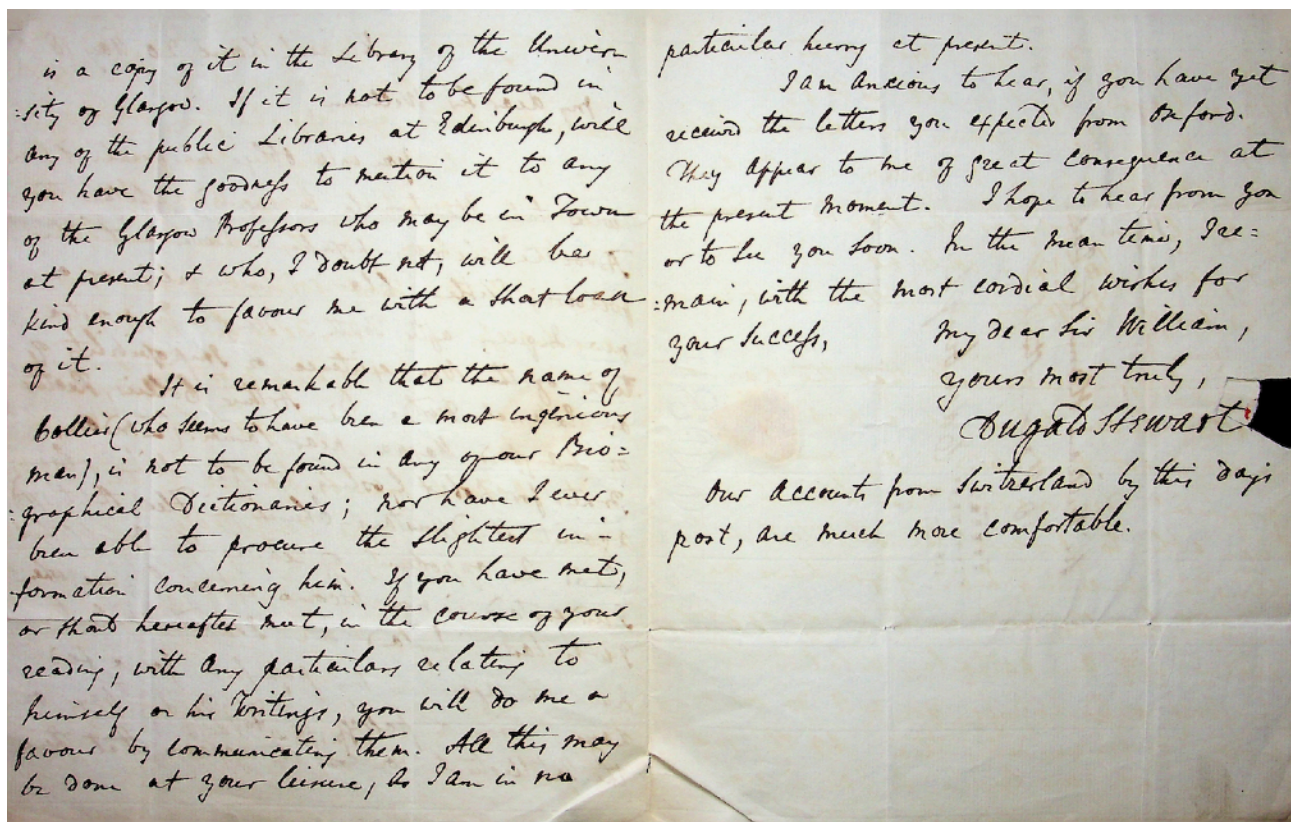 is a copy of it in the Library of the Univer
:sity of Glasgow. If it is not to be found in
any of the public Libraries at Edinburgh, will
you have the goodness to mention it to any
of the Glasgow Professors who may be in Town
at present; & who, I doubt not, will be
kind enough to favour me with a short loan
of it.
It is remarkable that the name of
Collier (who seems to have been a most ingenious
man), is not to be found in any of our Bio=
:graphical Dictionaries; nor have I ever
been able to procure the slightest in-
-formation concerning him. If you have met,
or should hereafter meet, in the course of your
reading, with any particulars relating to
himself or his Writings, you will do me a
favour by communicating them. All this may
be done at your leisure, as I am in no
particular hurry at present.
I am anxious to hear, if you have yet
received the letters you expected from Oxford.
They appear to me of great consequence at
the present moment. I hope to hear from you
or to see you soon. In the mean time, I re=
:main, with the most cordial wishes for
your success,
My dear Sir William,
yours most truly,
Dugald Stewart
Our accounts from Switzerland by this days
post, are much more comfortable.